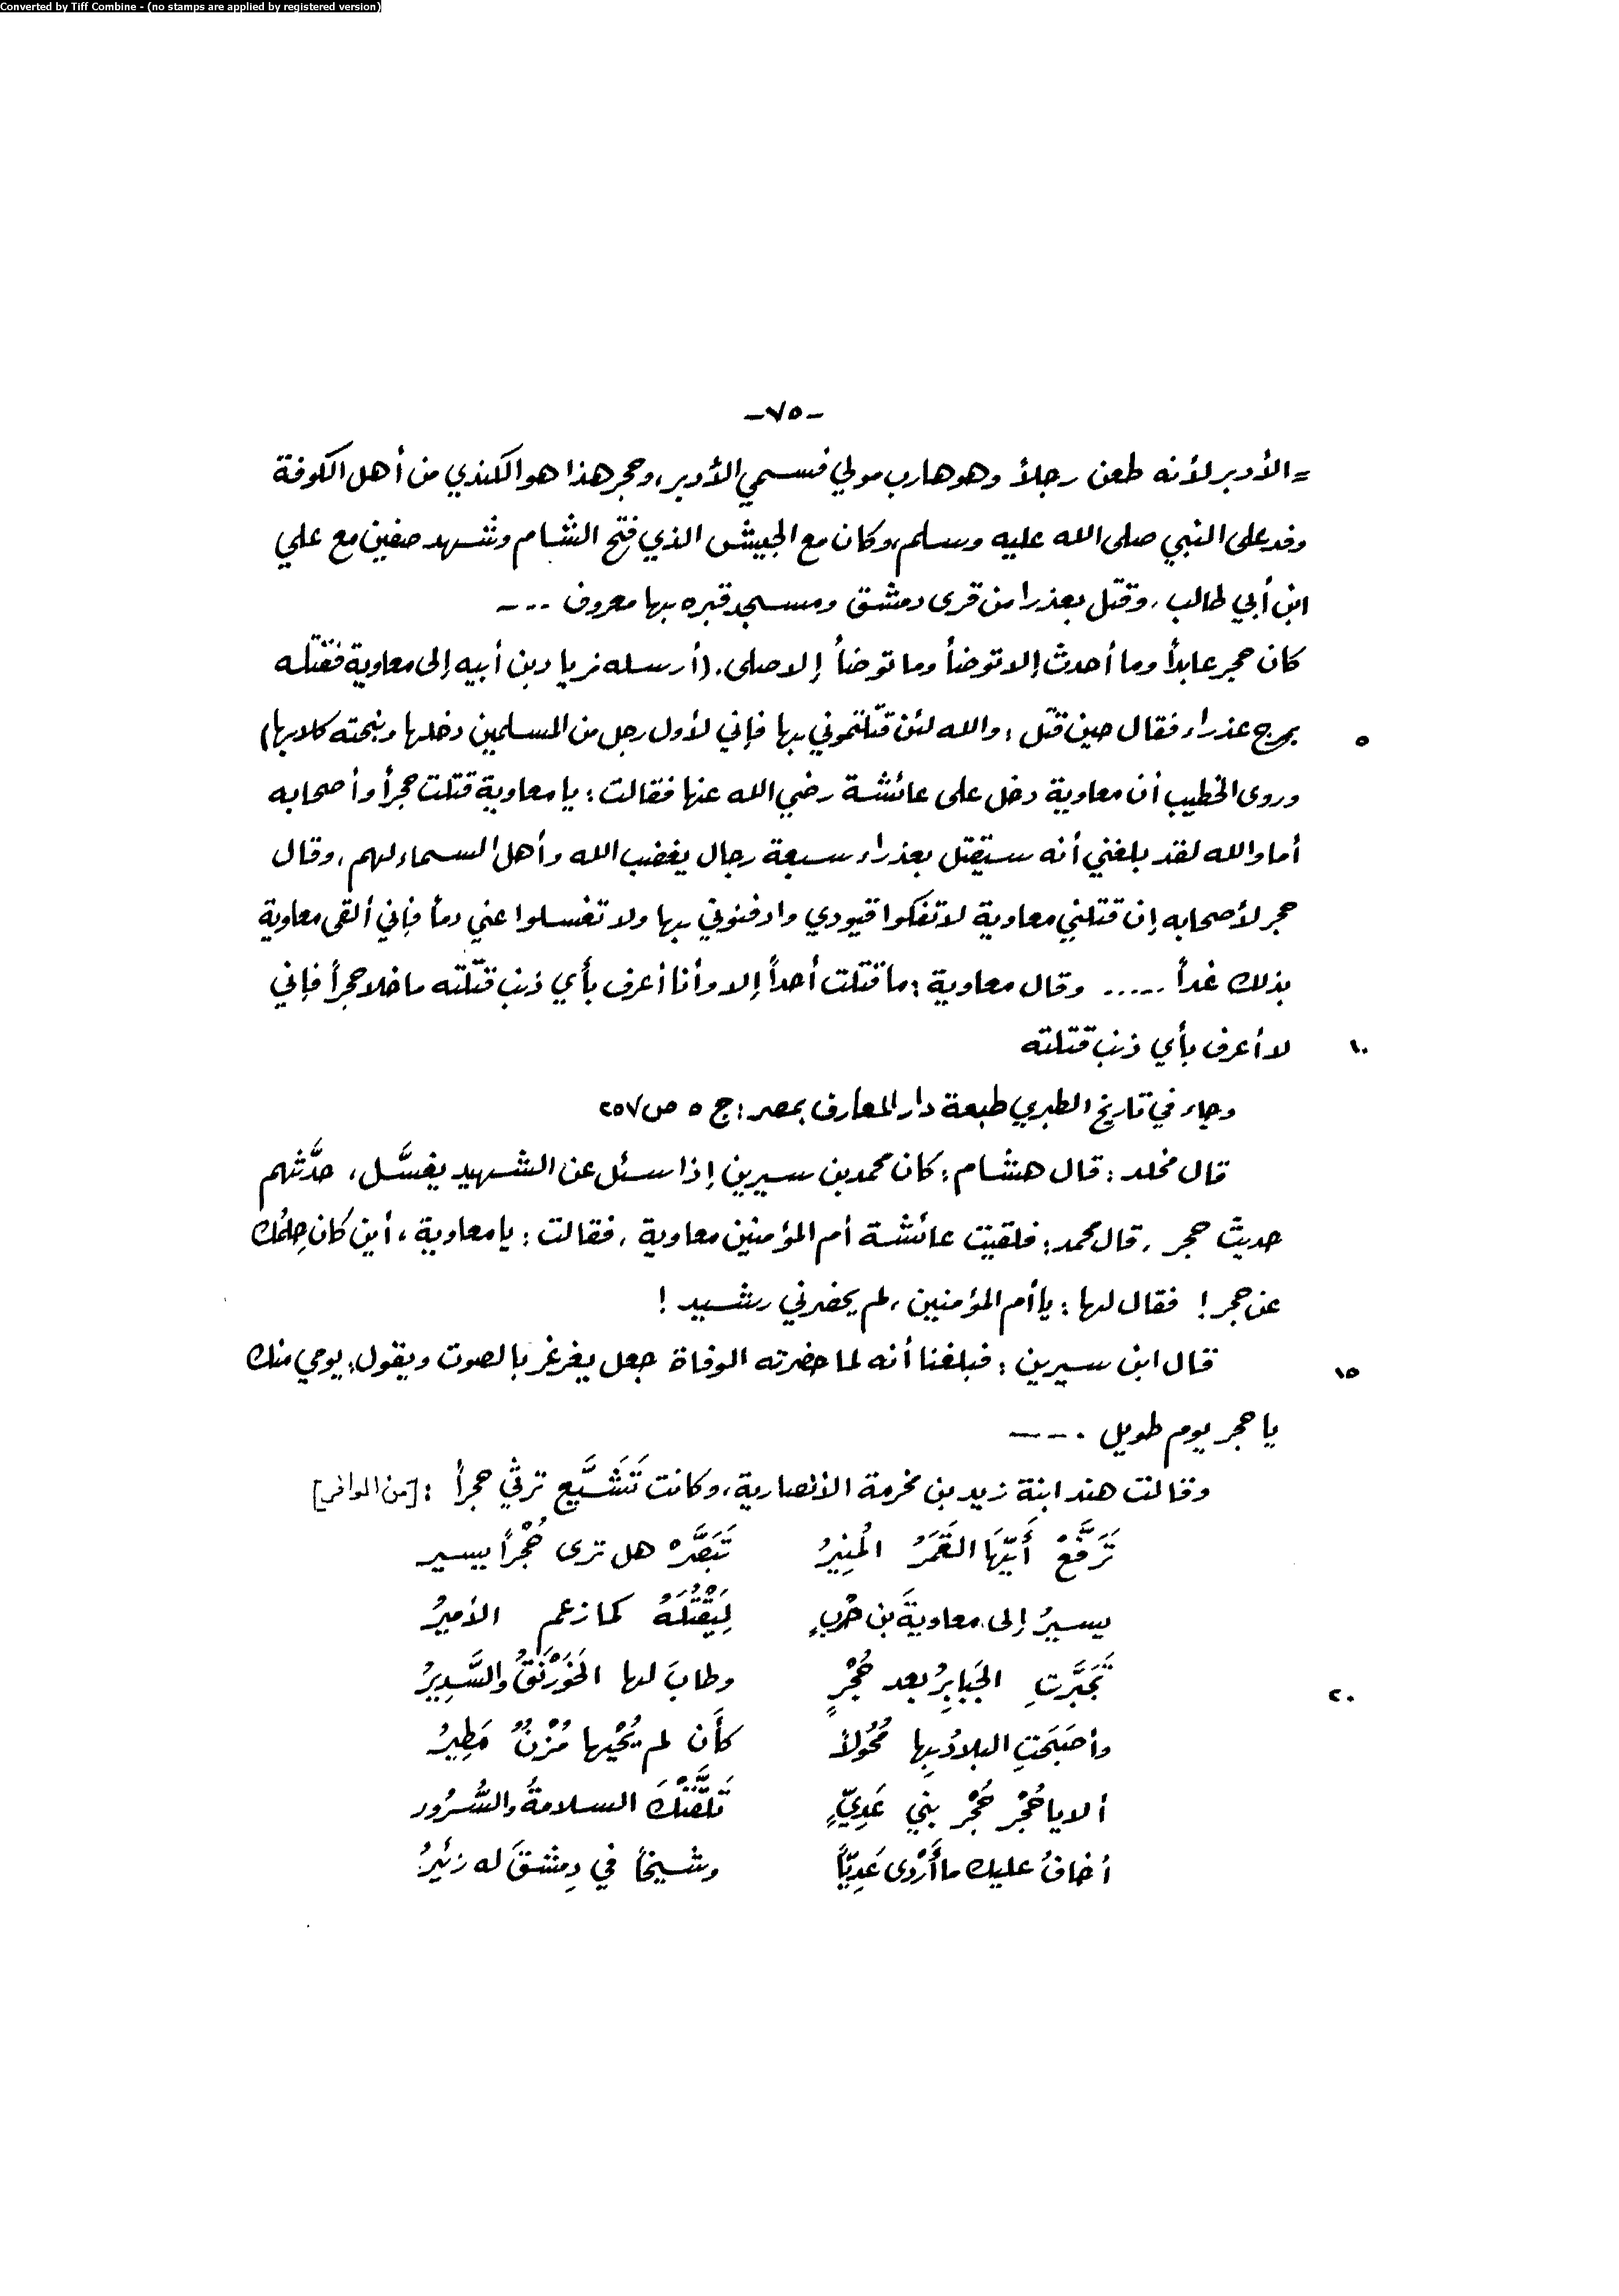 Converted by Tiff Combine - (no stamps are applied by registered version)
-٧٥-
= الأدبر لأنه طعن رجلاً وهو هارب مولي فسمي الأدبر، وحجر هذا هو الكندي من أهل الكوفة
وفد على النبي صلى الله عليه وسلم، وكان مع الجيش الذي فتح الشام وشهد صفين مع علي
ابن أبي طالب، وقتل بعذرا من قرى دمشق ومسجد قبره بها معروف ...
كان حجر عابداً وما أحدث إلا توضأ وما توضأ إلا صلى. (أرسله زياد بن أبيه إلى معاوية فقتله
٥ بمرج عذراء فقال حين قتل: والله لئن قتلتموني بها فإني لأول رجل من المسلمين دخلها ونبحته كلابها)
وروى الخطيب أن معاوية دخل على عائشة رضي الله عنها فقالت: يا معاوية قتلت حجراً وأصحابه
أما والله لقد بلغني أنه سيقتل بعذراء سبعة رجال يغضب الله وأهل السماء لهم، وقال
حجر لأصحابه إن قتلني معاوية لا تفكوا قيودي وادفنوني بها ولا تغسلوا عني دماً فإني ألقى معاوية
بذلك غداً ..... وقال معاوية: ما قتلت أحداً إلا وأنا أعرف بأي ذنب قتلته ما خلا حجراً فإني
١٠ لا أعرف بأي ذنب قتلته
وجاء في تاريخ الطبري طبعة دار المعارف بمصر: ج ٥ ص ٢٥٧
قال مخلد: قال هشام: كان محمد بن سيرين إذا سئل عن الشهيد يغسَّل، حدَّثهم
حديث حجر. قال محمد: فلقيت عائشة أم المؤمنين معاوية، فقالت: يا معاوية، أين كان حِلمُك
عن حجر! فقال لها: يا أم المؤمنين، لم يحضرني رشيد!
١٥ قال ابن سيرين: فبلغنا أنه لما حضرته الوفاة جعل يغرغر بالصوت ويقول: يومي منك
يا حجر يوم طويل. ---
وقالت هند ابنة زيد بن مخرمة الأنصارية، وكانت تَشَيَّع ترثي حجراً: [من الوافر]
تَرَفَّعْ أَيُّهَا القَمَرُ المُنِيرُ تَبَصَّرْ هل ترى حُجْراً يسير
يسيرُ إلى معاويةَ بن حَرْبٍ لِيَقْتُلَهُ كما زعم الأميرُ
٢٠ تَجَبَّرَتِ الجَبَابِرُ بعد حُجْرٍ وطابَ لها الخَوَرْنَقُ والسَّدِيرُ
وأصبَحَتِ البلادُ بها مُحُولاً كأَن لم يُحْيِها مُزْنٌ مَطِيرُ
ألا يا حُجْرُ حُجْرَ بني عَدِيٍّ تَلَقَّتْكَ السلامةُ والسُّرُور
أخافُ عليك ما أَرْدى عَدِيّاً وشيخاً في دِمشقَ له زئيرُ